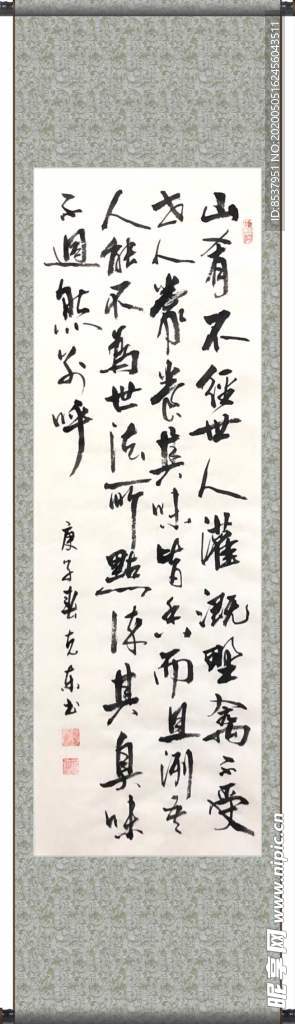 山肴不經世人灌溉野禽不受
世人豢養其味皆香而且洌吾
人能不為世法所點染其臭味
不迴然别呼
庚子春克东书
ID:8537951 NO:20200505162456043511
昵享网 www.nipic.cn